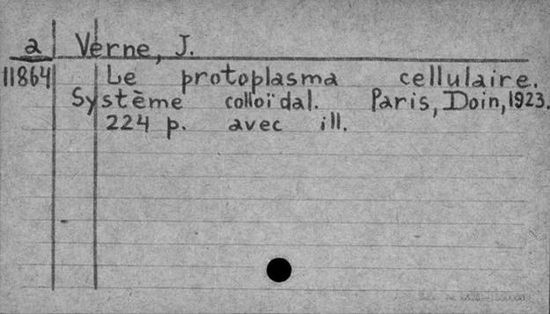 a Verne, J.
11864 Le protoplasma cellulaire.
Système colloïdal. Paris, Doin, 1923.
224 p. avec ill.